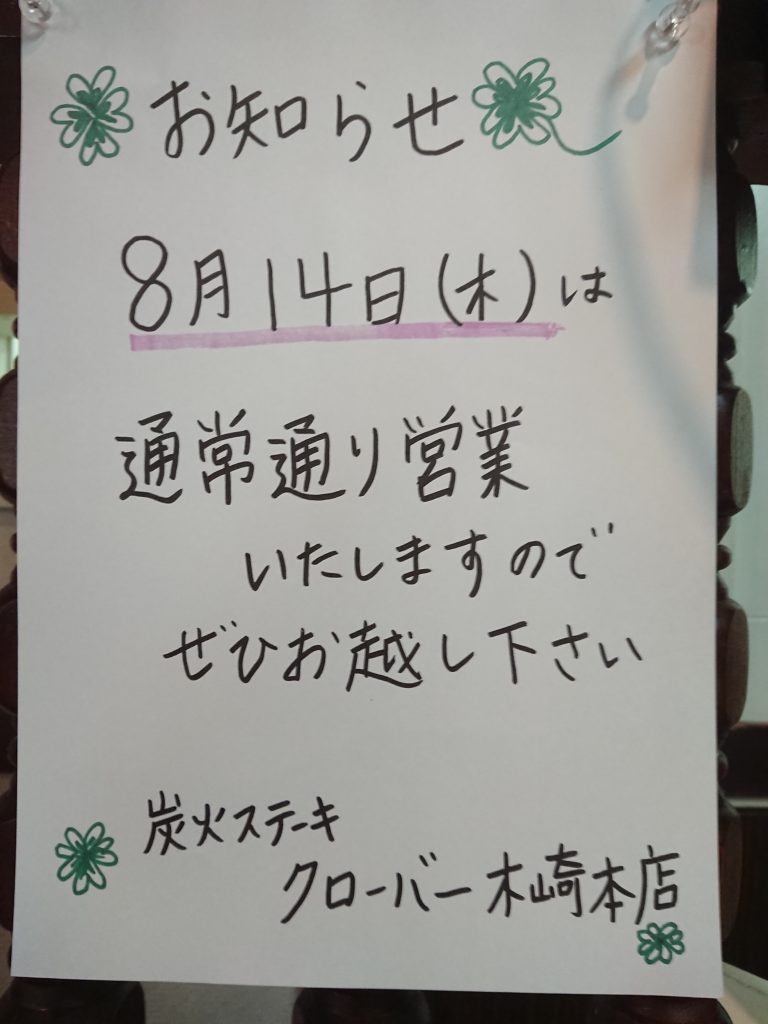 お知らせ
8月14日(木)は
通常通り営業
いたしますので
ぜひお越し下さい
炭火ステーキ
クローバー木崎本店